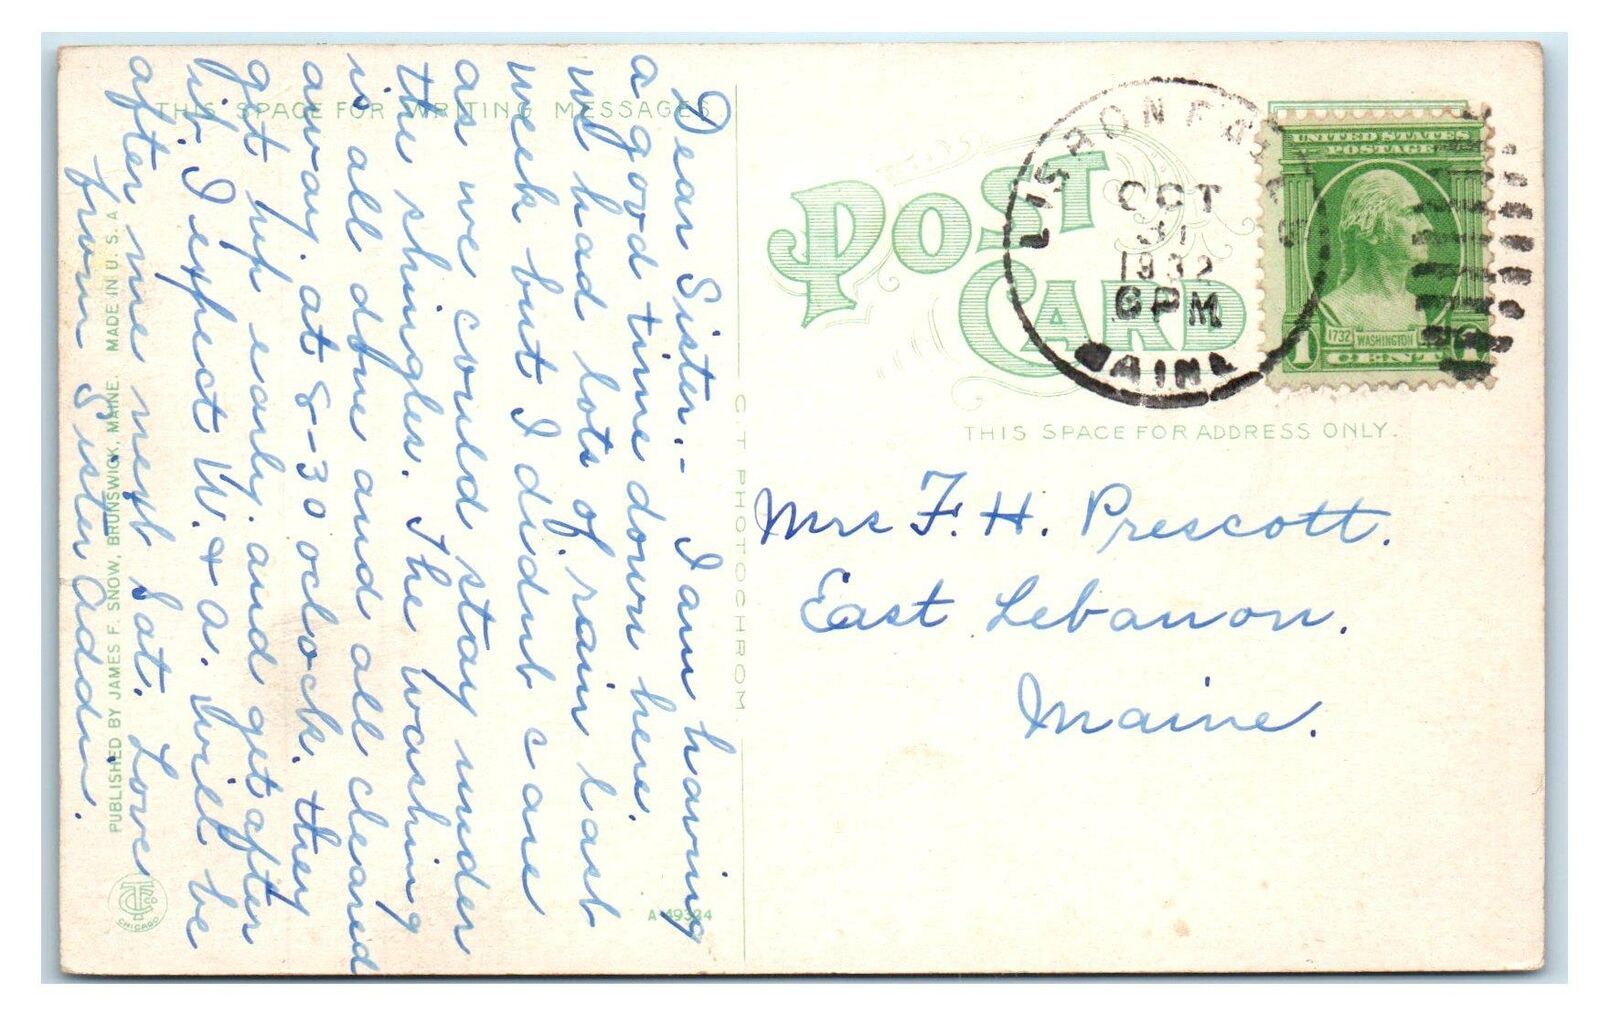 THIS SPACE FOR WRITING MESSAGES
Dear Sister.- I am having
a good time down here.
we had lots of rain last
week but I didnt care
as we could stay under
the shingles. The washing
is all done and all cleared
away. at 8-30 oclock. they
got up early. and get after
it. I expect W. & A. will be
after me next Sat. Love
from Sister Addie.
PUBLISHED BY JAMES F. SNOW, BRUNSWICK, MAINE. MADE IN U. S. A.
CHICAGO
A-49324
C. T. PHOTOCHROM
POST CARD
LISBON FALLS
OCT
31
1932
6 PM
MAINE
UNITED STATES
POSTAGE
1732 WASHINGTON
1 CENT 1
THIS SPACE FOR ADDRESS ONLY.
Mrs F. H. Prescott.
East Lebanon.
Maine.